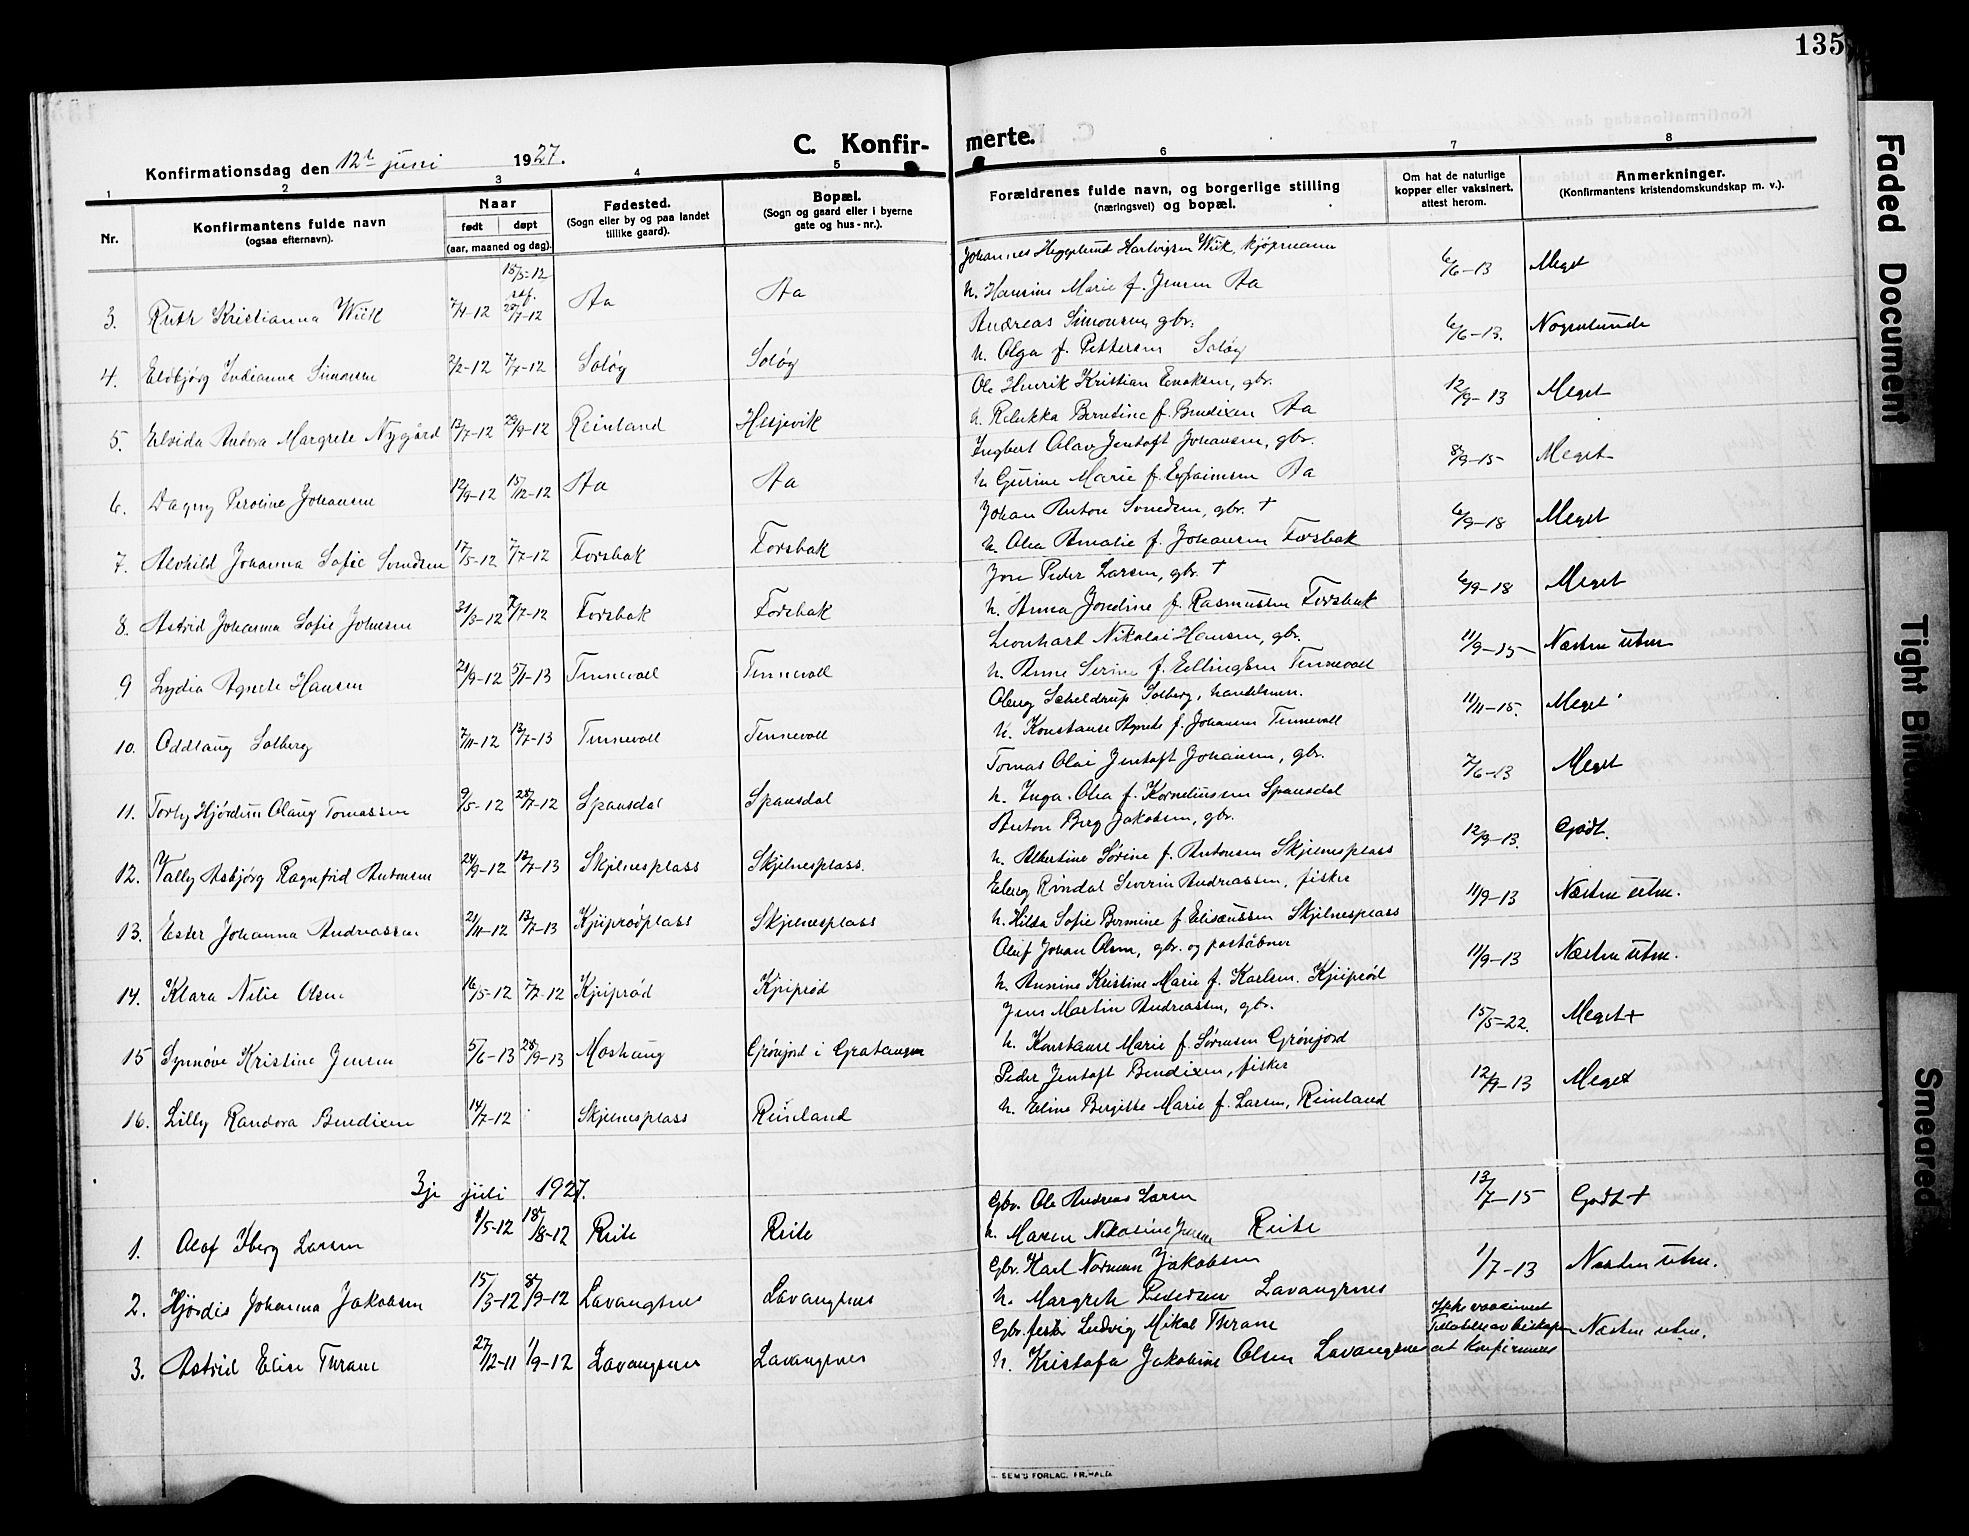 135
Konfirmationsdag den 12te juni 1927.
C. Konfirmerte.
1 2 3 4 5 6 7 8
Nr.
Konfirmantens fulde navn
(ogsaa efternavn).
Naar
født døpt
(aar, maaned og dag).
Fødested.
(Sogn eller by og paa landet
tillike gaard).
Bopæl.
(Sogn og gaard eller i byerne
gate og hus-nr.).
Forældrenes fulde navn, og borgerlige stilling
(næringsvei) og bopæl.
Om hat de naturlige
kopper eller vaksinert,
attest herom.
Anmerkninger.
(Konfirmantens kristendomskundskap m. v.).
Johannes Hegglund Hartvigsen Wiik, kjøpmann
3. Ruth Kristianna Wiik 7/4-12 15/5-12 stf. 28/7-12 Aa Aa h. Hansine Marie f. Jensen Aa 6/6-13 Meget
Andreas Simonsen, gbr.
4. Eldbjørg Indianna Simonsen 2/2-12 7/4-12 Soløy Soløy h. Olga f. Pettersen Soløy 6/6-13. Nogenlunde
Ole Henrik Kristian Enoksen, gbr.
5. Elvida Andora Margrete Nygård 13/7-12 29/9-12 Reinland Hesjevik h. Rebekka Berntine f. Bendixen Aa 12/9-13 Meget
Ingbert Olav Jentoft Johansen, gbr.
6. Dagny Peroline Johansen 12/9-12 15/12-12 Aa Aa h. Gurine Marie f. Efraimsen Aa 8/9-15 Meget
Johan Anton Svendsen, gbr. +
7. Alvhild Johanna Sofie Svendsen 17/5-12 7/7-12 Forsbak Forsbak h. Olea Amalie f. Johansen Forsbak 6/9-18 Meget
Jon Peder Larsen, gbr. +
8. Astrid Johanna Sofie Johnsen 31/3-12 7/7-12 Forsbak Forsbak h. Anna Jondine f. Rasmussen Forsbak 6/9-18 Meget
Leonhard Nikolai Hansen, gbr.
9 Lydia Agnete Hansen 21/9-12 5/1-13 Tennevoll Tennevoll h. Anne Serine f. Ellingsen Tennevoll 11/9-15 Næsten utm
Obeng Scheldrup Solberg, handelsmn.
10. Oddlaug Solberg 7/11-12 13/7-13 Tennevoll Tennevoll h. Konstanse Agnete f. Johansen Tennevoll 11/11-15. Meget
Tomas Olai Jentoft Johansen, gbr.
11. Torly Hjørdun Olaug Tomassen 9/5-12 28/7-12 Spansdal Spansdal h. Inga Olea f. Korneliussen Spansdal 7/6-13 Meget
Anton Berg Jakobsen, gbr.
12. Vally Asbjørg Ragnfrid Antonsen 24/9-12 12/7-13 Skjelnesplass Skjelnesplass. h. Albertine Sørine f. Antonsen Skjelnesplass 12/9-13. Godt.
Eberg Rindal Severin Andreassen, fisker
13. Ester Johanna Andreassen 21/11-12 13/7-13 Kjiprødplass Skjelnesplass h. Hilda Sofie Bermine f. Eliseussen Skjelnesplass 11/9-13 Næsten utm.
Oluf Johan Olsen, gbr. og poståbner
14. Klara Nelie Olsen 16/5-12 7/7-12 Kjiprød Kjiprød h. Annine Kristine Marie f. Karlsen. Kjiprød 11/9-13 Næsten utm.
Jens Martin Andreassen, gbr.
15 Synnøve Kristine Jensen 5/6-13 28/9-13 Moshaug Grønjord i Gratangen h. Konstanse Marie f. Sørensen Grønjord 15/5-22. Meget+
Peder Jentoft Bendixen, fisker
16. Lilly Randora Bendixen 14/7-12 Skjelnesplass Reinland h. Eline Bergitte Marie f. Larsen, Reinland 12/9-13 Meget
3je juli 1927.
Gbr. Ole Andreas Larsen
1. Olaf Iberg Larsen 1/5-12 18/8-12 Reite Reite h. Maren Nikoline Jensen Reite 13/7-15 Godt+
Gbr. Karl Norman Jakobsen
2. Hjørdis Johanna Jakobsen 15/3-12 8/9-12 Lavangsnes Lavangsnes h. Margrete Pedersen Lavangsnes 1/7-13 Næsten utm.
Gbr. fisk. Ludvig Mikal Thrane
3. Astrid Elise Thrane 27/12-11 1/9-12 Lavangsnes Lavangsnes h. Kristofa Jakobine Olsen Lavangsnes Ikke vaccinert Tillatelse av biskopen at konfirmeres Næsten utm.
SEM'S FORLAG, FR.HALD.
Faded Document
Tight Binding
Smeared